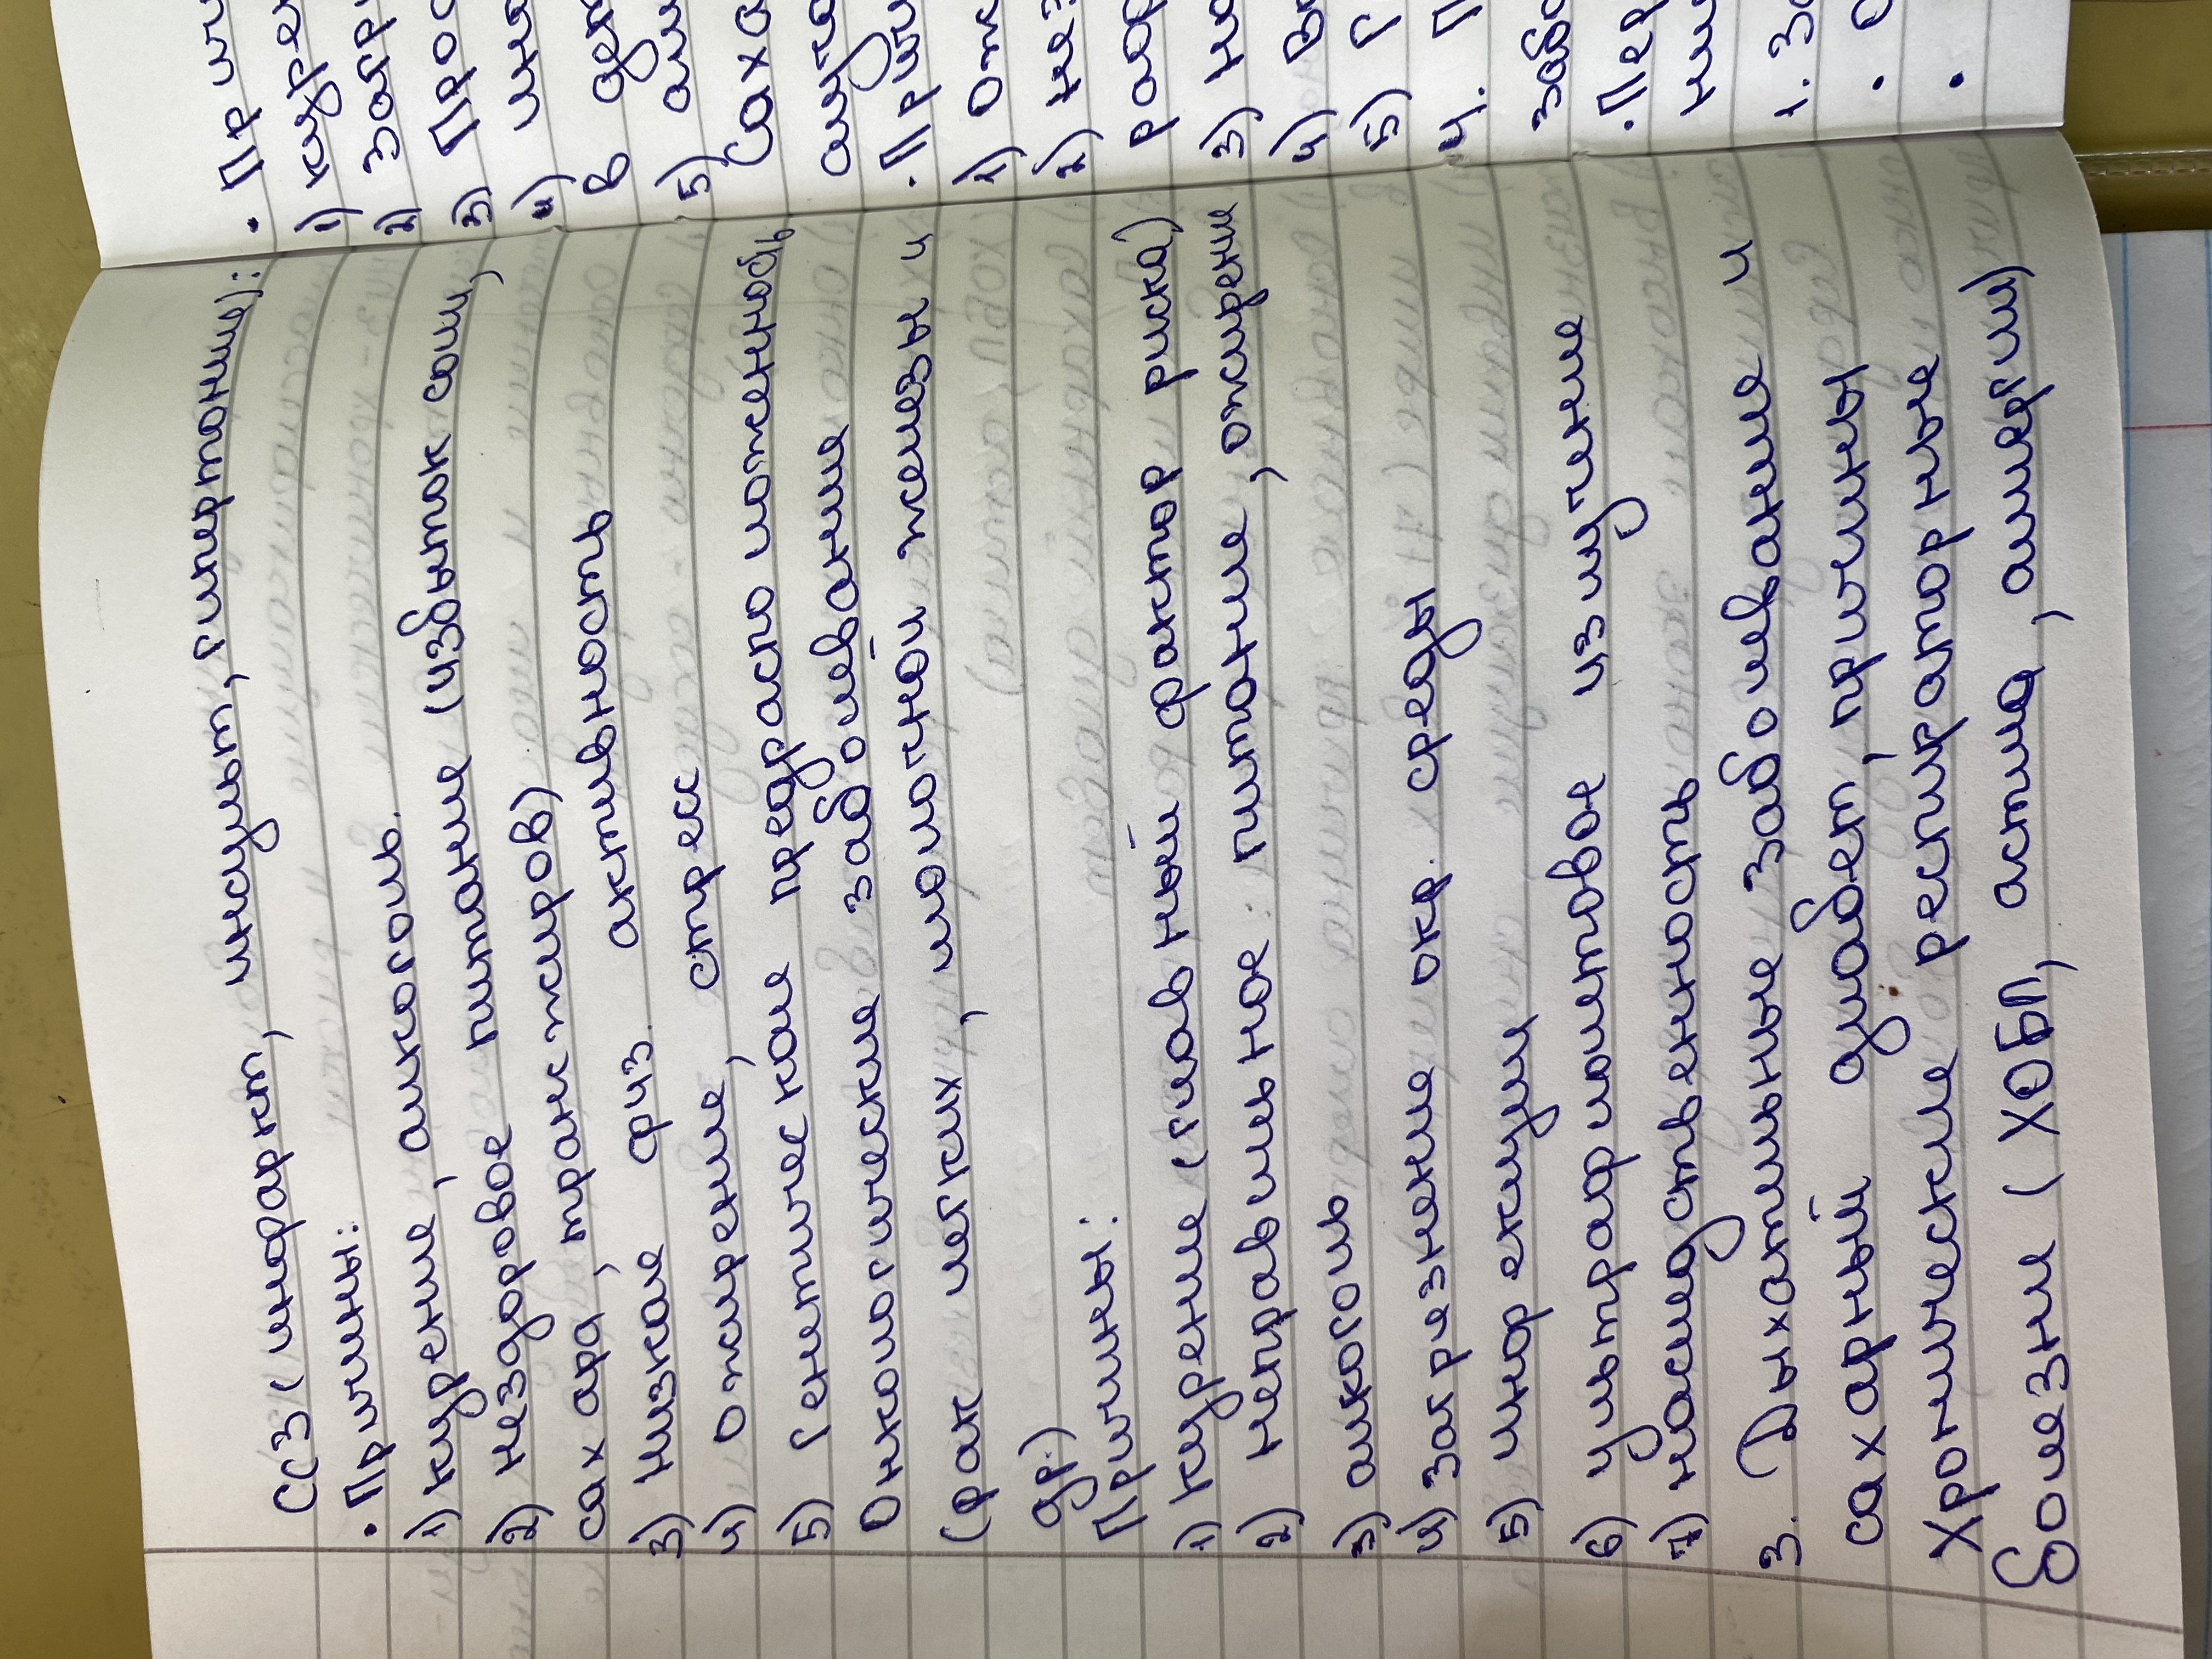 ССЗ (инфаркт, инсульт, гипертония):
• Причины:
1) курение, алкоголь.
2) нездоровое питание (избыток соли,
сахара, трансжиров)
3) низкая физ. активность
4) ожирение, стресс
5) генетическая предрасположенность
Онкологические заболевание
(рак легких, молочной железы и
др.)
Причины:
1) курение (главный фактор риска)
2) неправильное питание, ожирение
3) алкоголь
4) загрезнение окр. среды
5) инфекции
6) ультрафиолетовое излучение
7) наследственность
3. Дыхательные заболевание и
сахарный диабет, причины
Хронические респираторные
болезни (ХОБЛ, астма, аллергии)
• При
1)
2) загр
3) Про
4)
в
5)
Саха
• При
1) Ож
2) нез
3)
4)
5)
4.
забо
• Пер
1. За
•
•